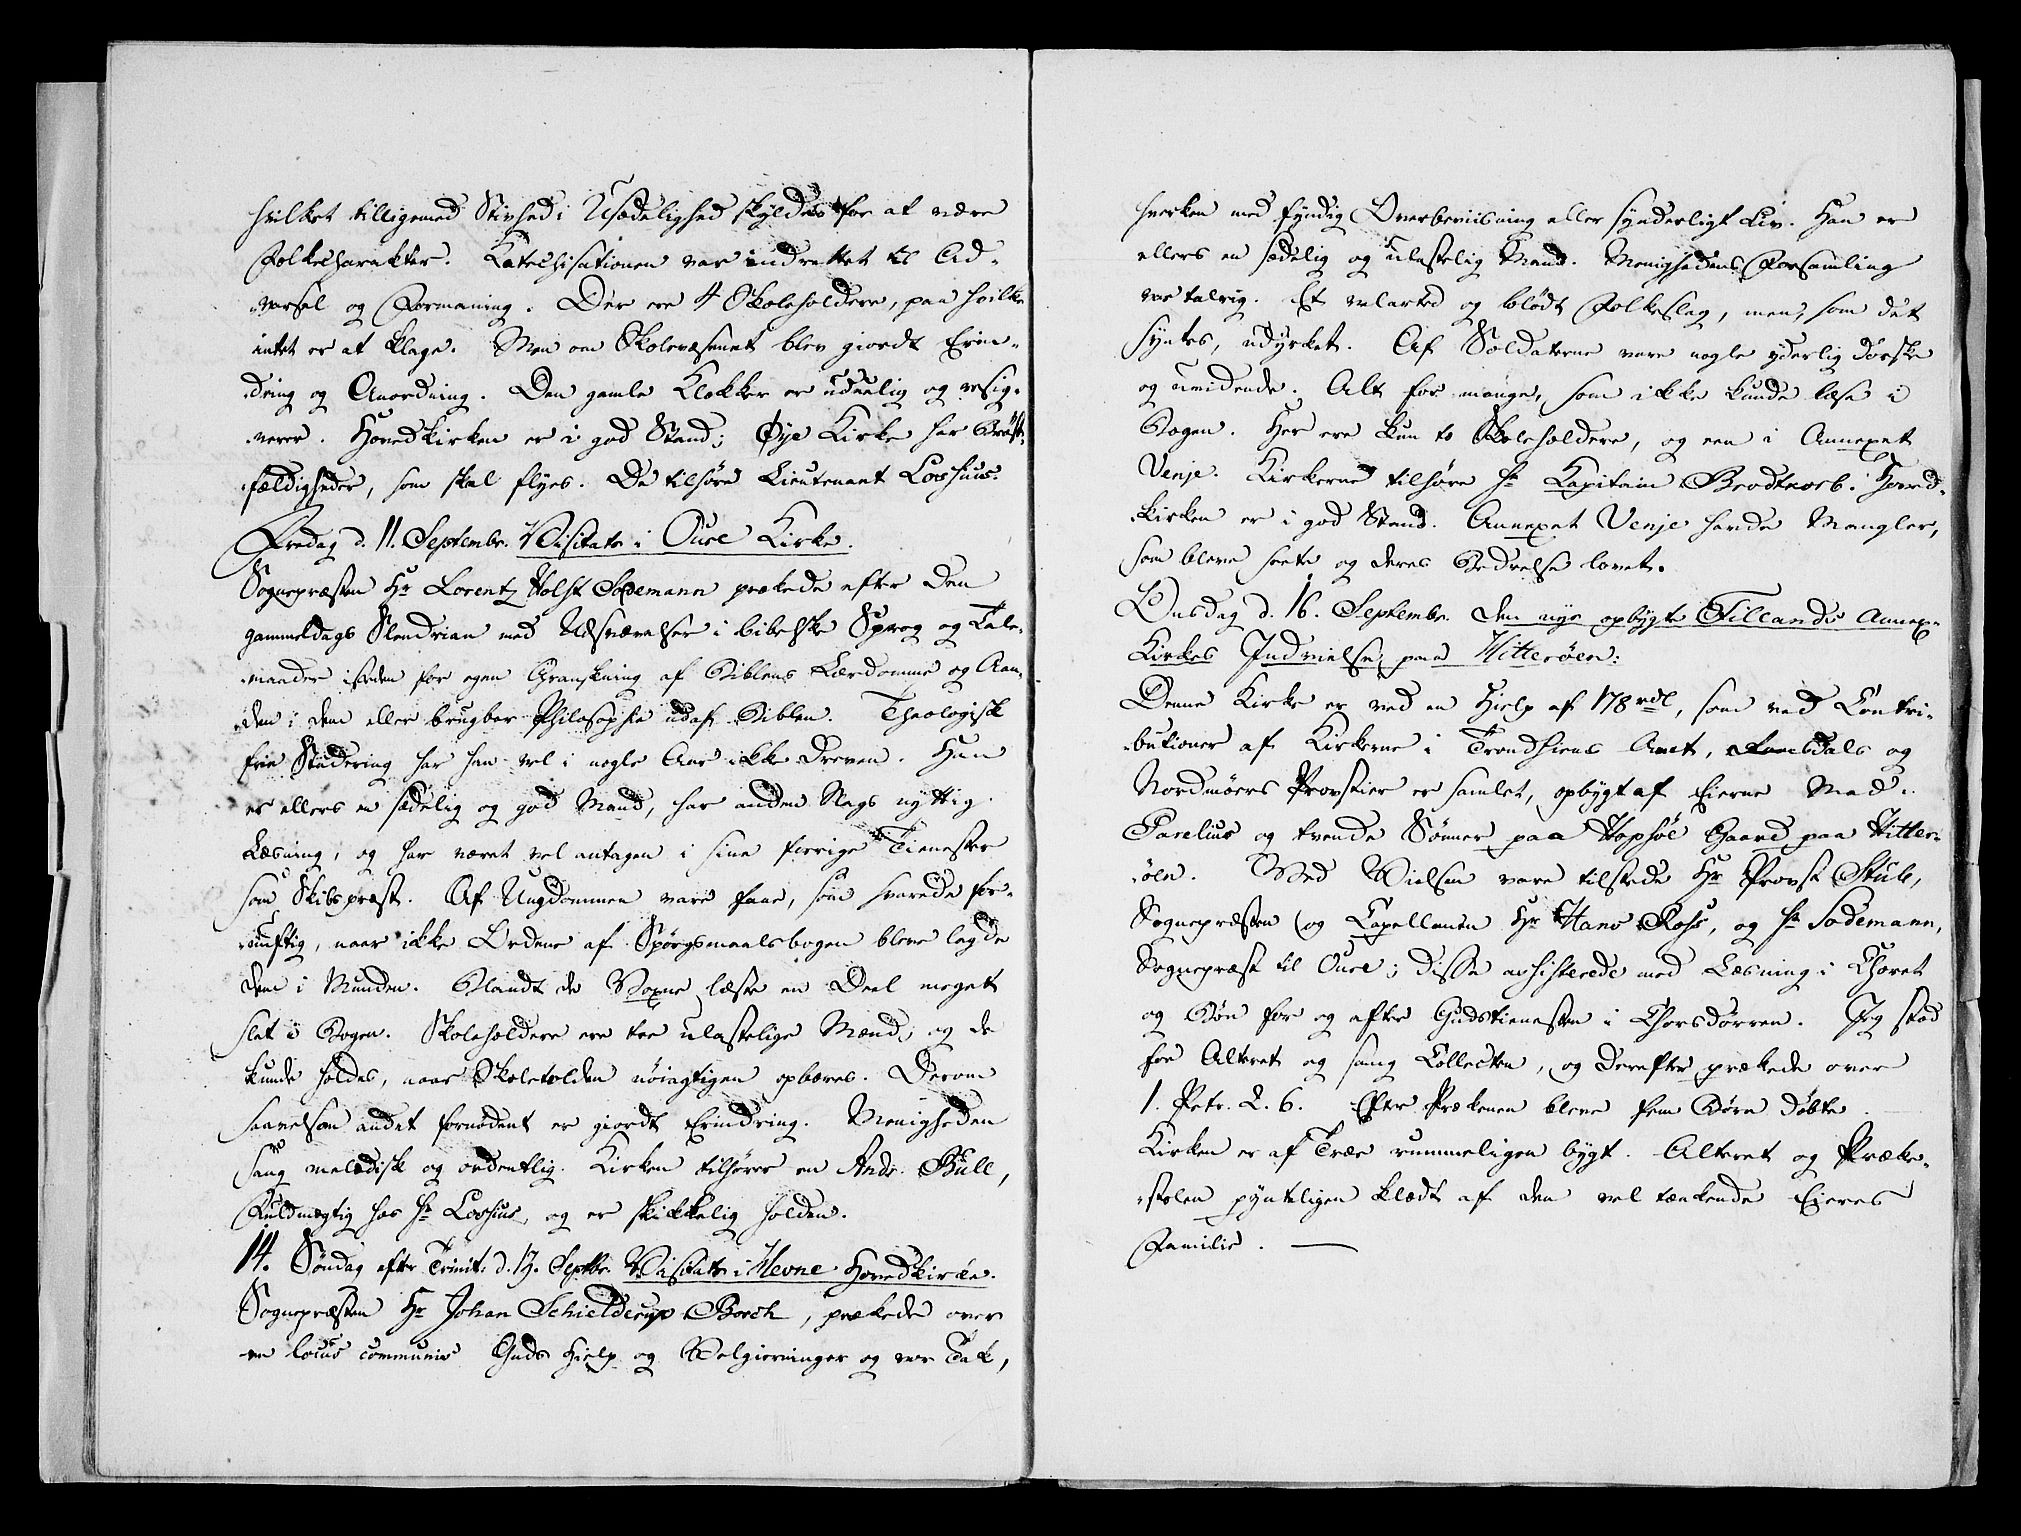 hvilket tilligemed Stivhed i Usædelighed skyldes for at være
Folkecharakter. Katechisationen var indrettet til Ad-
varsel og Formaning. Der ere 4 Skoleholdere, paa hvilke
intet er at klage. Men om Skolevæsenet blev giordt Erin-
dring og Anordning. Den gamle Klokker er uduelig og resig-
nerer. Hovedkirken er i god Stand; Øye Kirke har Bröst-
fældigheder, som skal flyes. De tilhöre Lieutenant Lossius.
Fredag d. 11. Septembr. Visitats i Oure Kirke.
Sognepræsten Hr Lorentz Holst Sodemann prækede efter den
gammeldags Slendrian med Udsvævelser i bibelske Sprog og Tale-
maader isteden for egen Granskning af Biblens Lærdomme og Aan-
den i dem eller brugbar Philosophie udaf Biblen. Theologisk
frie Studering har han vel i nogle Aar ikke dreven. Han
er ellers en sædelig og god Mand, har anden Slags nyttig
Læsning, og har været vel antagen i sine forrige Tienester
som Skibspræst. Af Ungdommen vare faae, som svarede for-
nuftig, naar ikke Ordene af Spörgsmaalsbogen bleve lagde
dem i Munden. Blandt de Voxne læste en Deel meget
slet i Bogen. Skoleholdere ere tre ulastelige Mænd, og de
kunde holdes, naar Skoletolden nöiagtigen opbæres. Derom
saavelsom andet fornödent er giordt Erindring. Menigheden
sang melodisk og ordentlig. Kirken tilhörer en Andr. Bull,
Fuldmægtig hos Hr Lossius, og er skikkelig holden.
14. Söndag efter Trinit: d. 13. Septbr. Visitats i Hevne Hovedkirke.
Sognepræsten Hr Johan Schielderup Borch, prækede over
en locus communis Guds Hielp og Velgierninger og vor Tak,
hverken med fyndig Overbeviisning eller synderligt Liv. Han er
ellers en sædelig og ulastelig Mand. Menighedens Forsamling
var talrig. Et velartet og blödt Folkeslag, men, som det
syntes, udyrket. Af Soldaterne vare nogle yderlig dorske
og uvidende. Alt for mange, som ikke kunde læse i
Bogen. Her ere kun to Skoleholdere, og een i Annexet
Venje. Kirkerne tilhöre Hr Kapitain Brodtkorb. Hoved-
kirken er i god Stand. Annexet Venje havde Mangler,
som bleve seete og deres Bedrelse lovet.
Onsdag d. 16. Septembr. den nye opbygte Fillands Annex-
Kirkes Indvielse paa Hitteröen:
Denne Kirke er ved en Hielp af 178 rdl, som ved Contri-
butioner af Kirkerne i Trondhiems Amt, Romsdals og
Nordmöers Provstier er samlet, opbygt af Eierne Mad.
Parelius og tvende Sönner paa Hopsöe Gaard paa Hitter-
öen. Ved Vielsen vare tilstede Hr Provst Stub,
Sognepræsten og Capellanen Hr Hans Rohs, og Hr Sodemann,
Sognepræst til Oure; disse assisterede med Læsning i Choret
og Bön for og efter Gudstienesten i Chorsdörren. Jeg stod
for Alteret og sang Collecten, og derefter prækede over
1. Petr. 2. 6. Efter Prækenen bleve fem Börn döbte.
Kirken er af Træe rummeligen bygt. Alteret og Præke-
stolen pynteligen klædt af den vel tænkende Eieres
Familie.